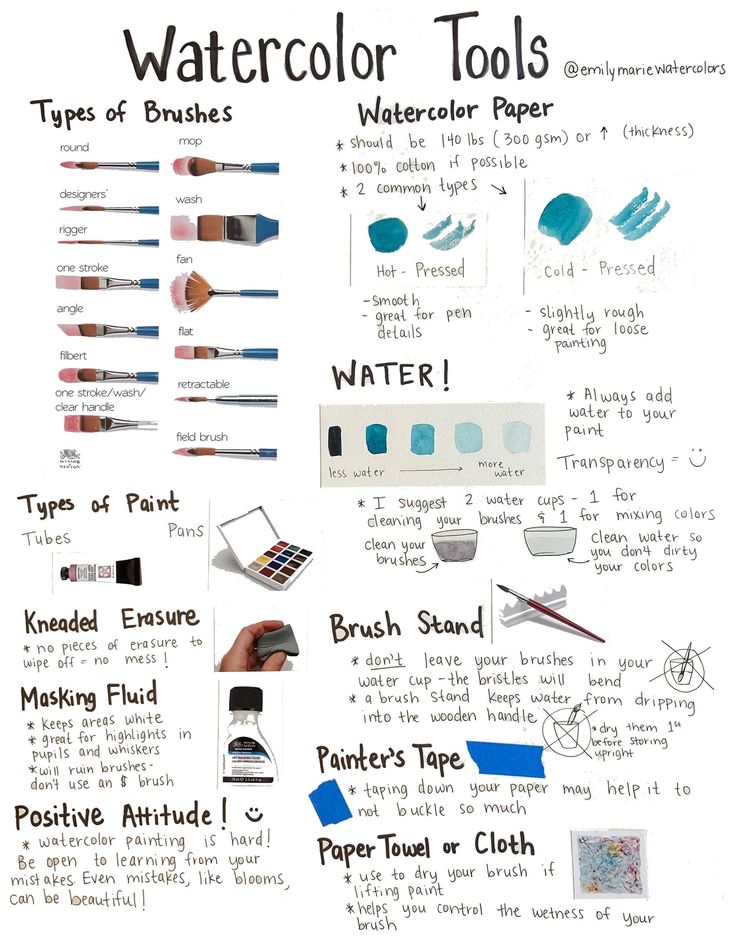 Watercolor Tools
@emilymariewatercolors
Types of Brushes
round
mop
designers'
wash
rigger
one stroke
fan
angle
flat
filbert
retractable
one stroke/wash/
clear handle
field brush
WINSOR
& NEWTON
Watercolor Paper
* should be 140 lbs (300 gsm) or ↑ (thickness)
* 100% cotton if possible
* 2 common types
Hot - Pressed
- smooth
- great for pen
details
Cold - Pressed
- slightly rough
- great for loose
painting
WATER!
less water → more
water
* Always add
water to your
paint
Transparency = ☺
* I suggest 2 water cups - 1 for
cleaning your brushes & 1 for mixing colors
clean your
brushes
clean water so
you don't dirty
your colors
Types of Paint
Tubes
Pans
Kneaded Erasure
* no pieces of erasure to
wipe off = no mess!
Masking Fluid
* keeps areas white
* great for highlights in
pupils and whiskers
* will ruin brushes -
don't use an $ brush
Positive Attitude! ☺
* watercolor painting is hard!
Be open to learning from your
mistakes. Even mistakes, like blooms,
can be beautiful!
Brush Stand
* don't leave your brushes in your
water cup - the bristles will bend
* a brush stand keeps water from dripping
into the wooden handle
* dry them 1st
before storing
upright
Painter's Tape
* taping down your paper may help it to
not buckle so much
Paper Towel or Cloth
* use to dry your brush if
lifting paint
* helps you control the wetness of your
brush